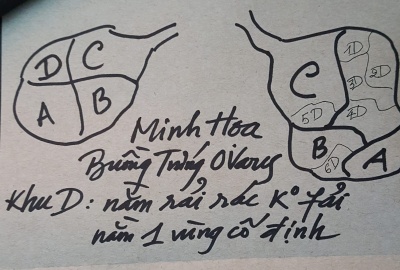 D C
A B
C
1D
2D
3D
4D
5D
B
6D
A
Minh Hoa
Buồng Trứng Ovary
Khu D: nằm rải rác K° phải
nằm 1 vùng cố định